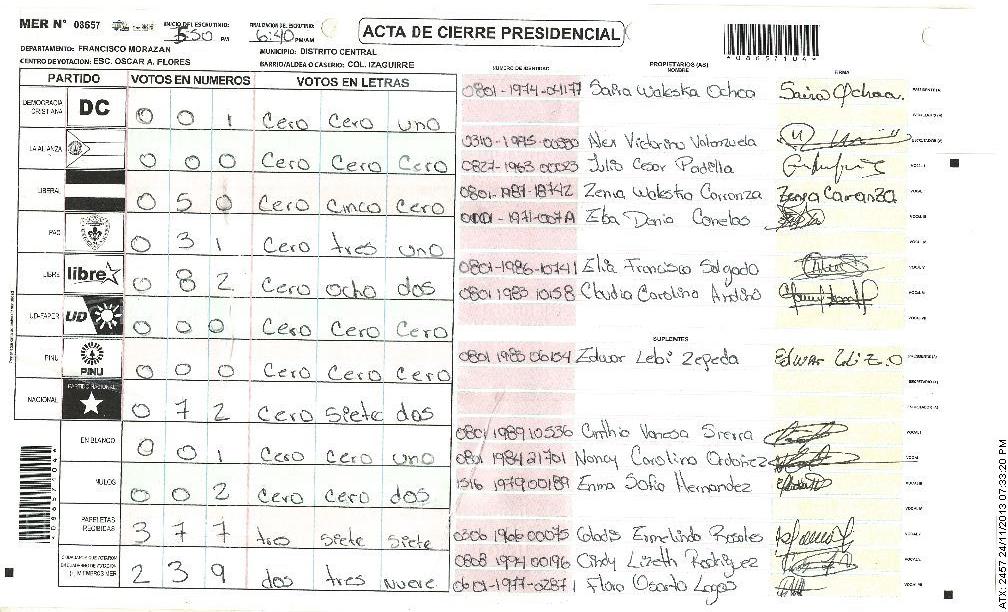 MER N° 08657
INICIO DEL ESCRUTINIO: 5:30 PM
FINALIZACION DEL ESCRUTINIO: 6:40 PM/AM
ACTA DE CIERRE PRESIDENCIAL
*08657104*
DEPARTAMENTO: FRANCISCO MORAZAN
MUNICIPIO: DISTRITO CENTRAL
CENTRO DE VOTACION: ESC. OSCAR A. FLORES
BARRIO/ALDEA O CASERIO: COL. IZAGUIRRE
PARTIDO VOTOS EN NUMEROS VOTOS EN LETRAS
DEMOCRACIA CRISTIANA DC 0 0 1 cero cero uno
LA ALIANZA 0 0 0 cero cero cero
LIBERAL 0 5 0 cero cinco cero
PAC 0 3 1 cero tres uno
LIBRE libre 0 8 2 cero ocho dos
UD-FAPER UD 0 0 0 cero cero cero
PINU PINU 0 0 0 cero cero cero
NACIONAL PARTIDO NACIONAL 0 7 2 cero siete dos
EN BLANCO 0 0 1 cero cero uno
NULOS 0 0 2 cero cero dos
PAPELETAS RECIBIDAS 3 7 7 tres siete siete
2 3 9 dos tres nueve
NUMERO DE IDENTIDAD PROPIETARIOS (AS) NOMBRE FIRMA
0801-1974-04177 Saira Waleska Ochoa Saira Ochoa.
Alex Victorino Valenzuela
0827-1963 00023 Luis Cesar Padilla
0801-1987-18742 Zenia Waleska Carranza Zenia Carranza
Elba Denia Canelas
0801-1986-10741 Elia Francisca Salgado
0801 1983 10158 Claudia Carolina Andino
SUPLENTES
0801 1985 06154 Edwar Lebi Zepeda
0801 1989 10536 Cinthia Vanesa Sierra
0801 1984 21701 Nancy Carolina Ordoñez
1516 1979 00189 Enma Sofia Hernandez
0306 1966 00075 Gladis Ermelinda Rosales
0808 1994 00196 Cindy Lizeth Rodriguez
0601-1977-02871 Flora Osorto Lagos
ATX: 2457 24/11/2013 07:33:20 PM